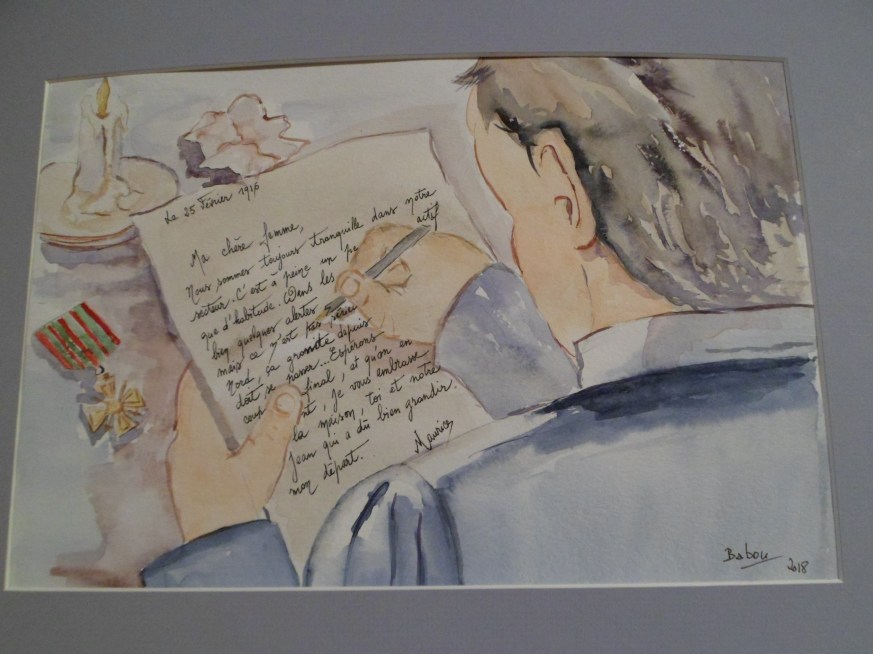 Le 25 Février 1916
Ma chère femme,
Nous sommes toujours tranquille dans notre
secteur. C'est à peine un pe actif
que d'habitude. Dans les
bien quelques alertes
mais ce n'est pas série
Nord, ça grossite depuis
doit se passer.. Espérons
coup final, et qu'on en
nt, je vous embrasse
la maison, toi et notre
Jean qui a dû bien grandir.
mon départ.
Maurice
Babou
2018